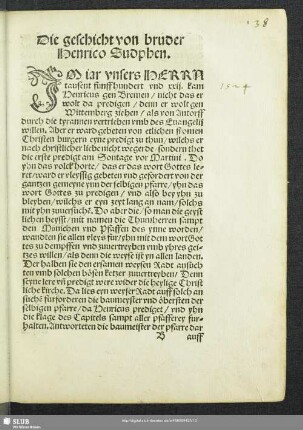 38
Die geschicht von bruder
Henrico Sudphen.
IM iar vnsers HERRN
tausent funffhundert vnd xxij. kam
Henricus gen Bremen / nicht das er
wolt da predigen / denn er wolt gen
Wittemberg ziehen / als von Antorff
durch die tyrannen vertrieben vmb des Euangelij
willen. Aber er ward gebeten von etlichen fromen
Christen burgern eyne predigt zu thun / wilchs er
nach christlicher liebe nicht wegerde sondern thet
die erste predigt am Sontage vor Martini. Do
yhn das volck horte / das er das wort Gottes le-
ret / ward er vleyssig gebeten vnd gefordert von der
gantzen gemeyne ynn der selbigen pfarre / yhn das
wort Gottes zu predigen / vnd also bey yhn zu
bleyben / wilchs er eyn zeyt lang an nam / solchs
mit yhn zuuersuchen. Do aber die / so man die geyst
lichen heysst / mit namen die Thumherren sampt
den Munichen vnd Pfaffen des ynne worden /
wandten sie allen vleys fur / yhn mit dem wort Got
tes zu dempffen vnd zuuertreyben vmb yhres gei-
tzes willen / als denn die weyse ist yn allen landen.
Der halben sie den ersamen weysen Radt ansuch
ten vmb solchen bösen ketzer zuuertreyben / Denn
seyne lere vnd predigt were wider die heylige Christ
liche kirche. Da lies eyn weyser Radt auff solch an
suchen fur foderen die baumeyster vnd öbersten der
selbigen pfarre / da Henricus prediget / vnd yhn
die klage des Capitels sampt aller pfafferey fur-
halten. Antworteten die baumeister der pfarre dar
B auff
1524
SLUB